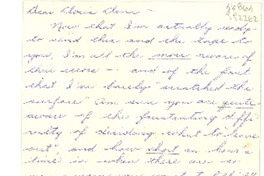 Dear Doris Dern -
Now that I'm actually ready
to send this and the tape to
you, I'm all the more aware of
these ideas - and of the fact
that I've barely scratched the
surface. I'm sure you are quite
aware of the frustrating diffi-
culty of deciding what to "leave
out" and how short an hour's
time is when there are so